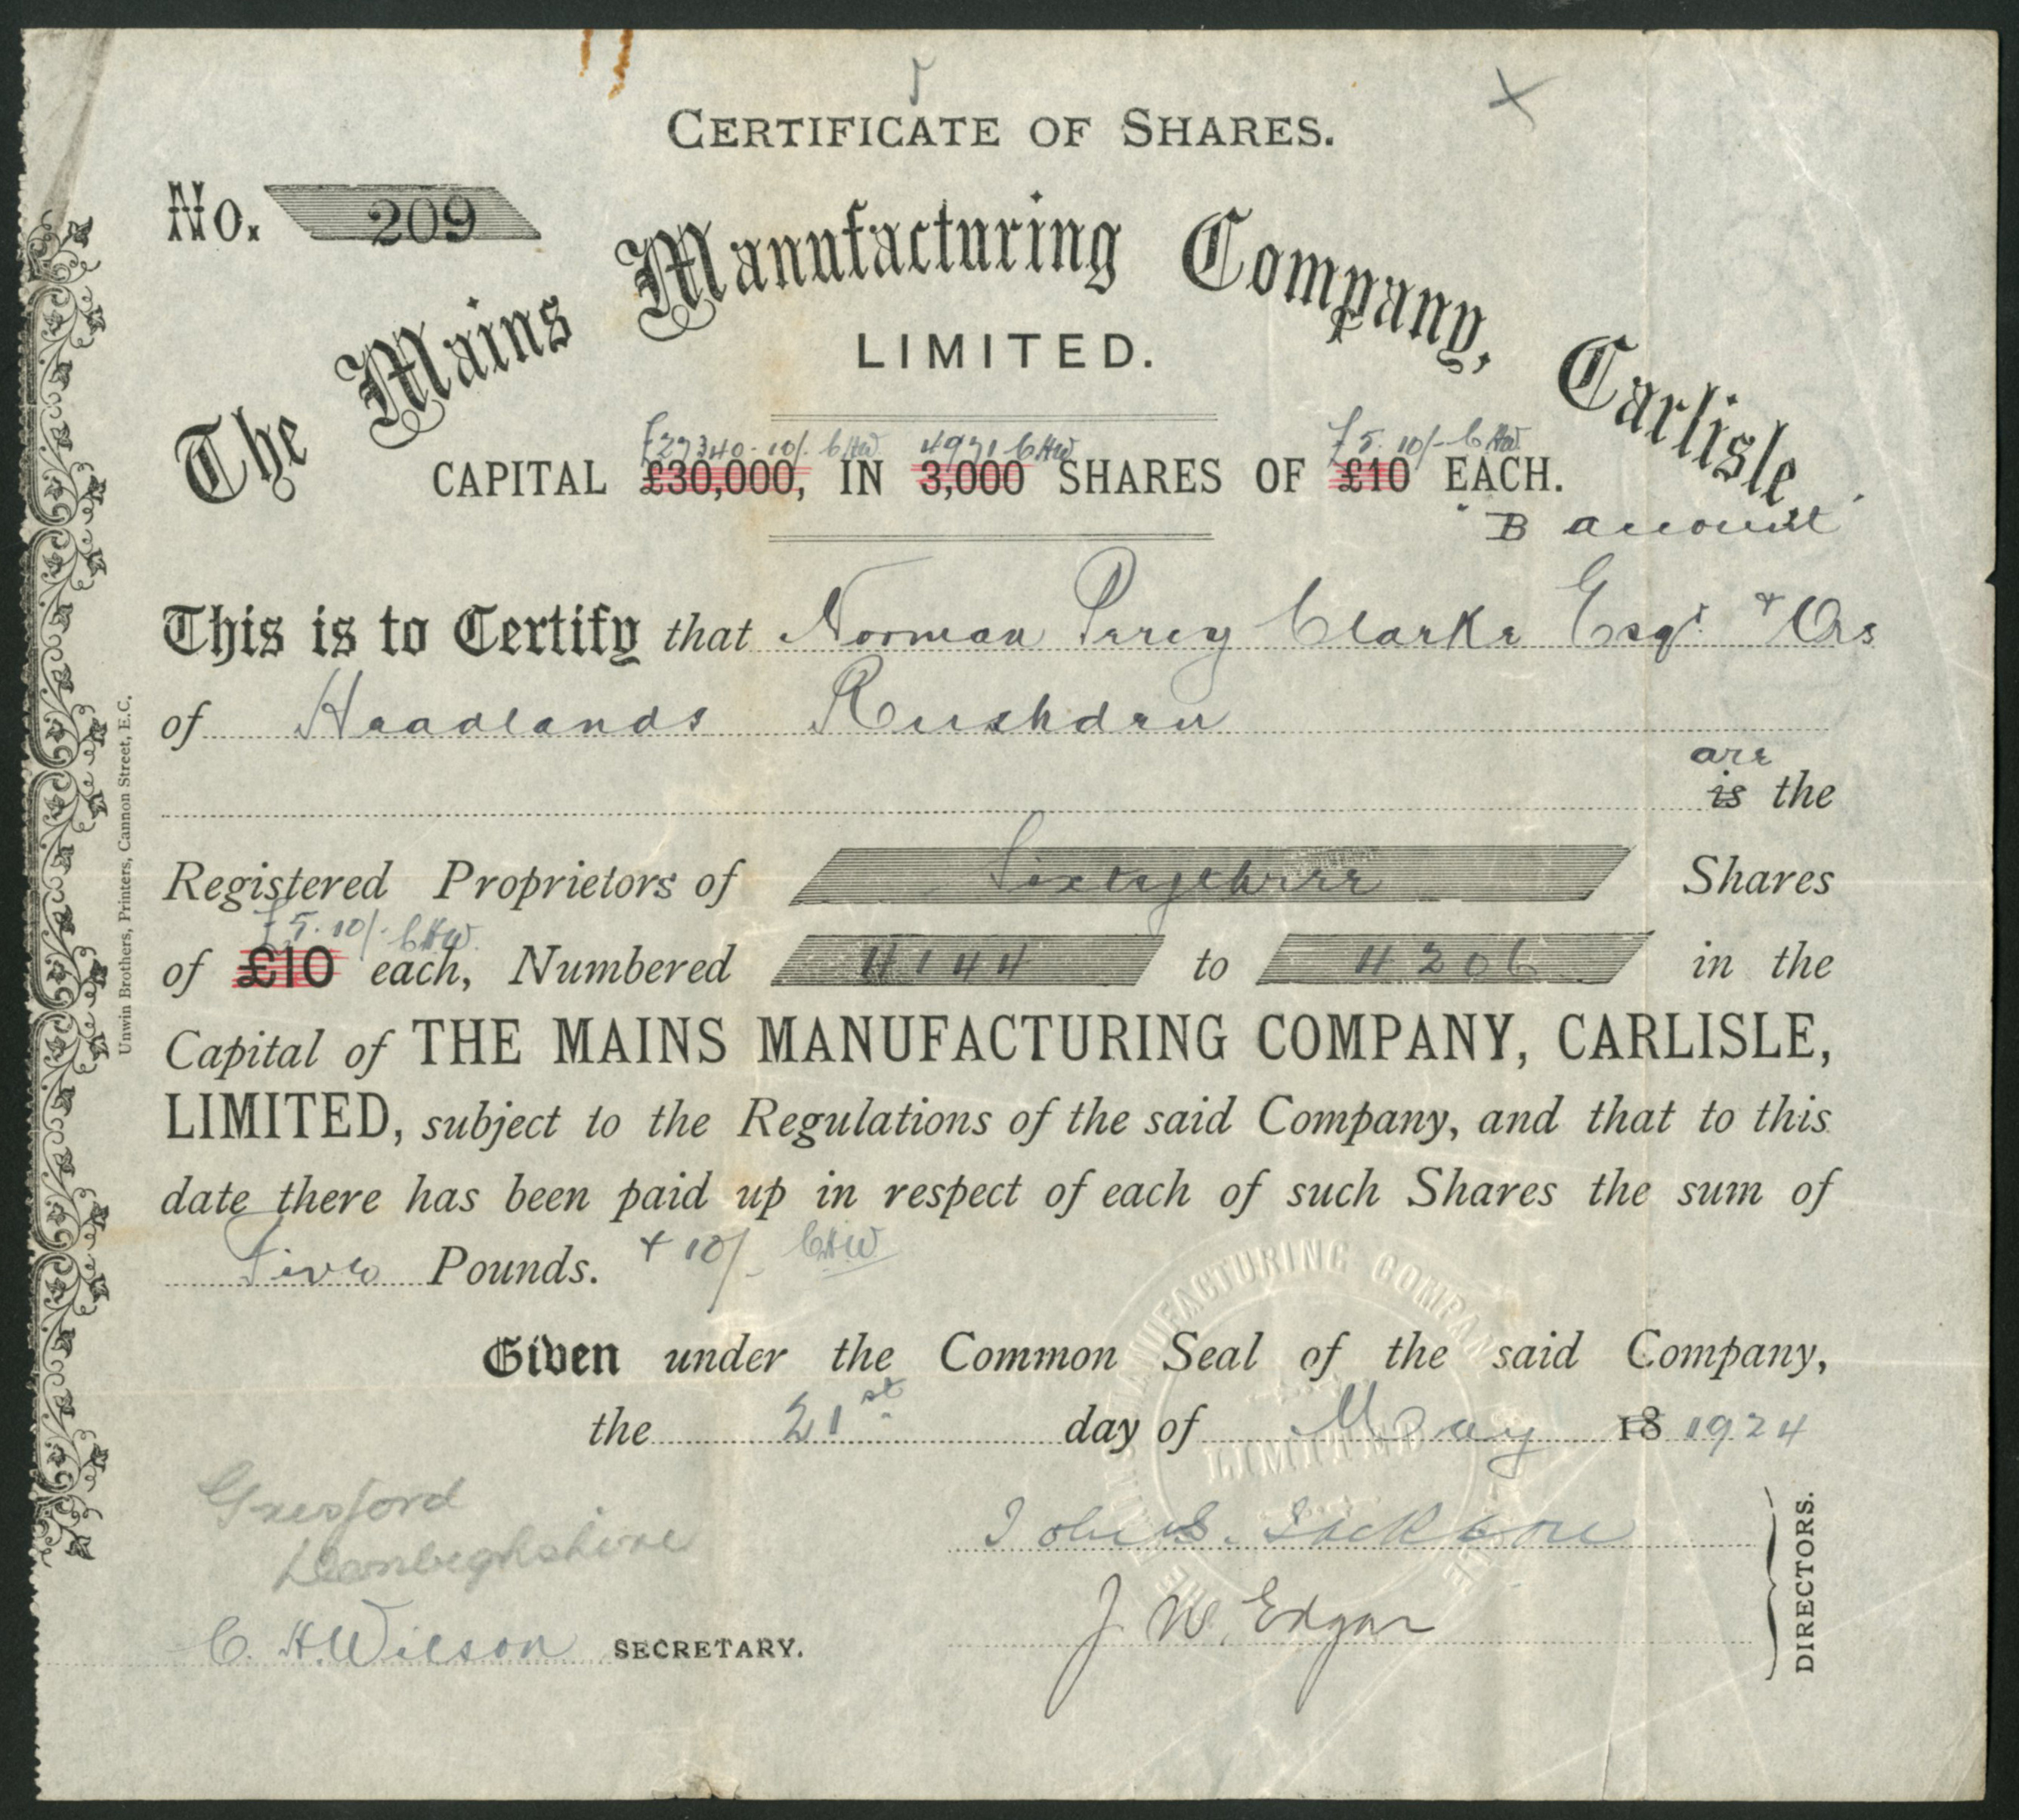 CERTIFICATE OF SHARES.
No. 209
The Mains Manufacturing Company, Carlisle
LIMITED.
£27340-10/- CHW 4971 CHW £5.10/- CHW
CAPITAL £30,000, IN 3,000 SHARES OF £10 EACH.
"B account"
This is to Certify that Norman Percy Clarke Esqr. & Ors
of Headlands Rushden
are
is the
Registered Proprietors of Sixtythree Shares
£5.10/- CHW.
of £10 each, Numbered 4144 to 4206 in the
Capital of THE MAINS MANUFACTURING COMPANY, CARLISLE,
LIMITED, subject to the Regulations of the said Company, and that to this
date there has been paid up in respect of each of such Shares the sum of
Five Pounds. + 10/- CHW
Given under the Common Seal of the said Company,
the 21st day of May 18 1924
Gresford
Denbighshire
John S.
J. W. Edgar
DIRECTORS.
C. H. Wilson SECRETARY.
Unwin Brothers, Printers, Cannon Street, E.C.
MANUFACTURING COMPANY
LIMITED